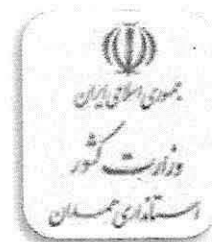 جمهوری اسلامی ایران
وزارت کشور
استانداری همدان